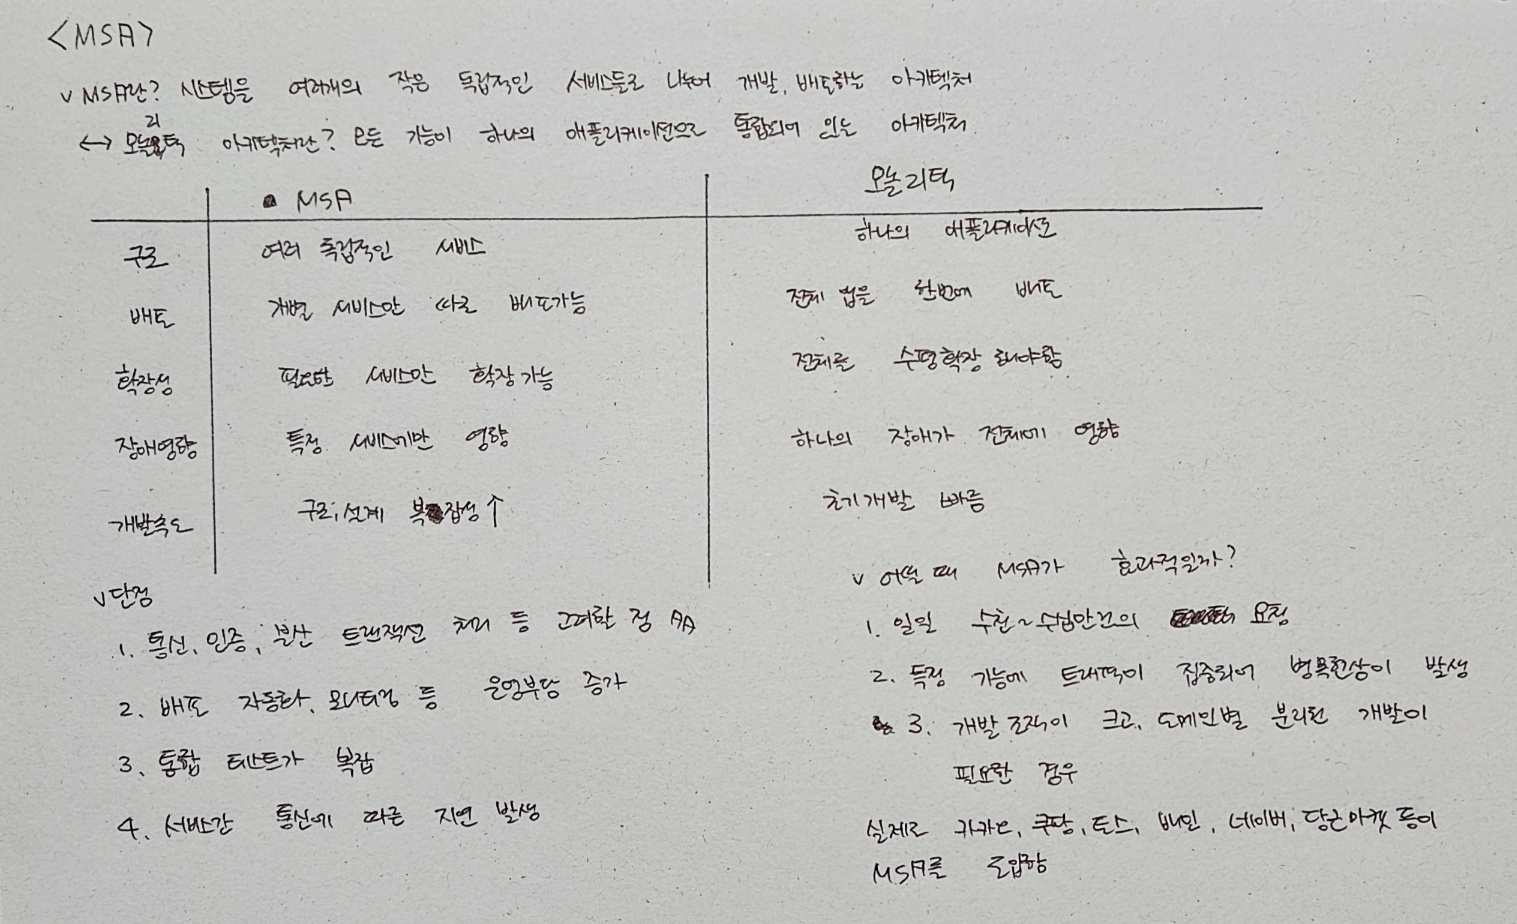 <MSA>
v MSA란? 시스템을 여러개의 작은 독립적인 서비스들로 나누어 개발, 배포하는 아키텍처
↔ 모놀리틱 아키텍처란? 모든 기능이 하나의 애플리케이션으로 통합되어 있는 아키텍처
MSA 모놀리틱
구조 여러 독립적인 서비스 하나의 애플리케이션
배포 개별 서비스만 따로 배포가능 전체 앱을 한번에 배포
확장성 필요한 서비스만 확장가능 전체를 수평확장 해야함
장애영향 특정 서비스에만 영향 하나의 장애가 전체에 영향
개발속도 구조, 설계 복잡성↑ 초기개발 빠름
v 단점
1. 통신, 인증, 분산 트랜잭션 처리 등 고려할 점
2. 배포 자동화, 모니터링 등 운영부담 증가
3. 통합 테스트가 복잡
4. 서비스간 통신에 따른 지연 발생
v 어떨 때 MSA가 효과적일까?
1. 일일 수천~수십만건의 요청
2. 특정 기능에 트래픽이 집중되어 병목현상이 발생
3. 개발조직이 크고, 도메인별 분리된 개발이
필요한 경우
실제로 카카오, 쿠팡, 토스, 배민, 네이버, 당근마켓 등이
MSA를 도입함